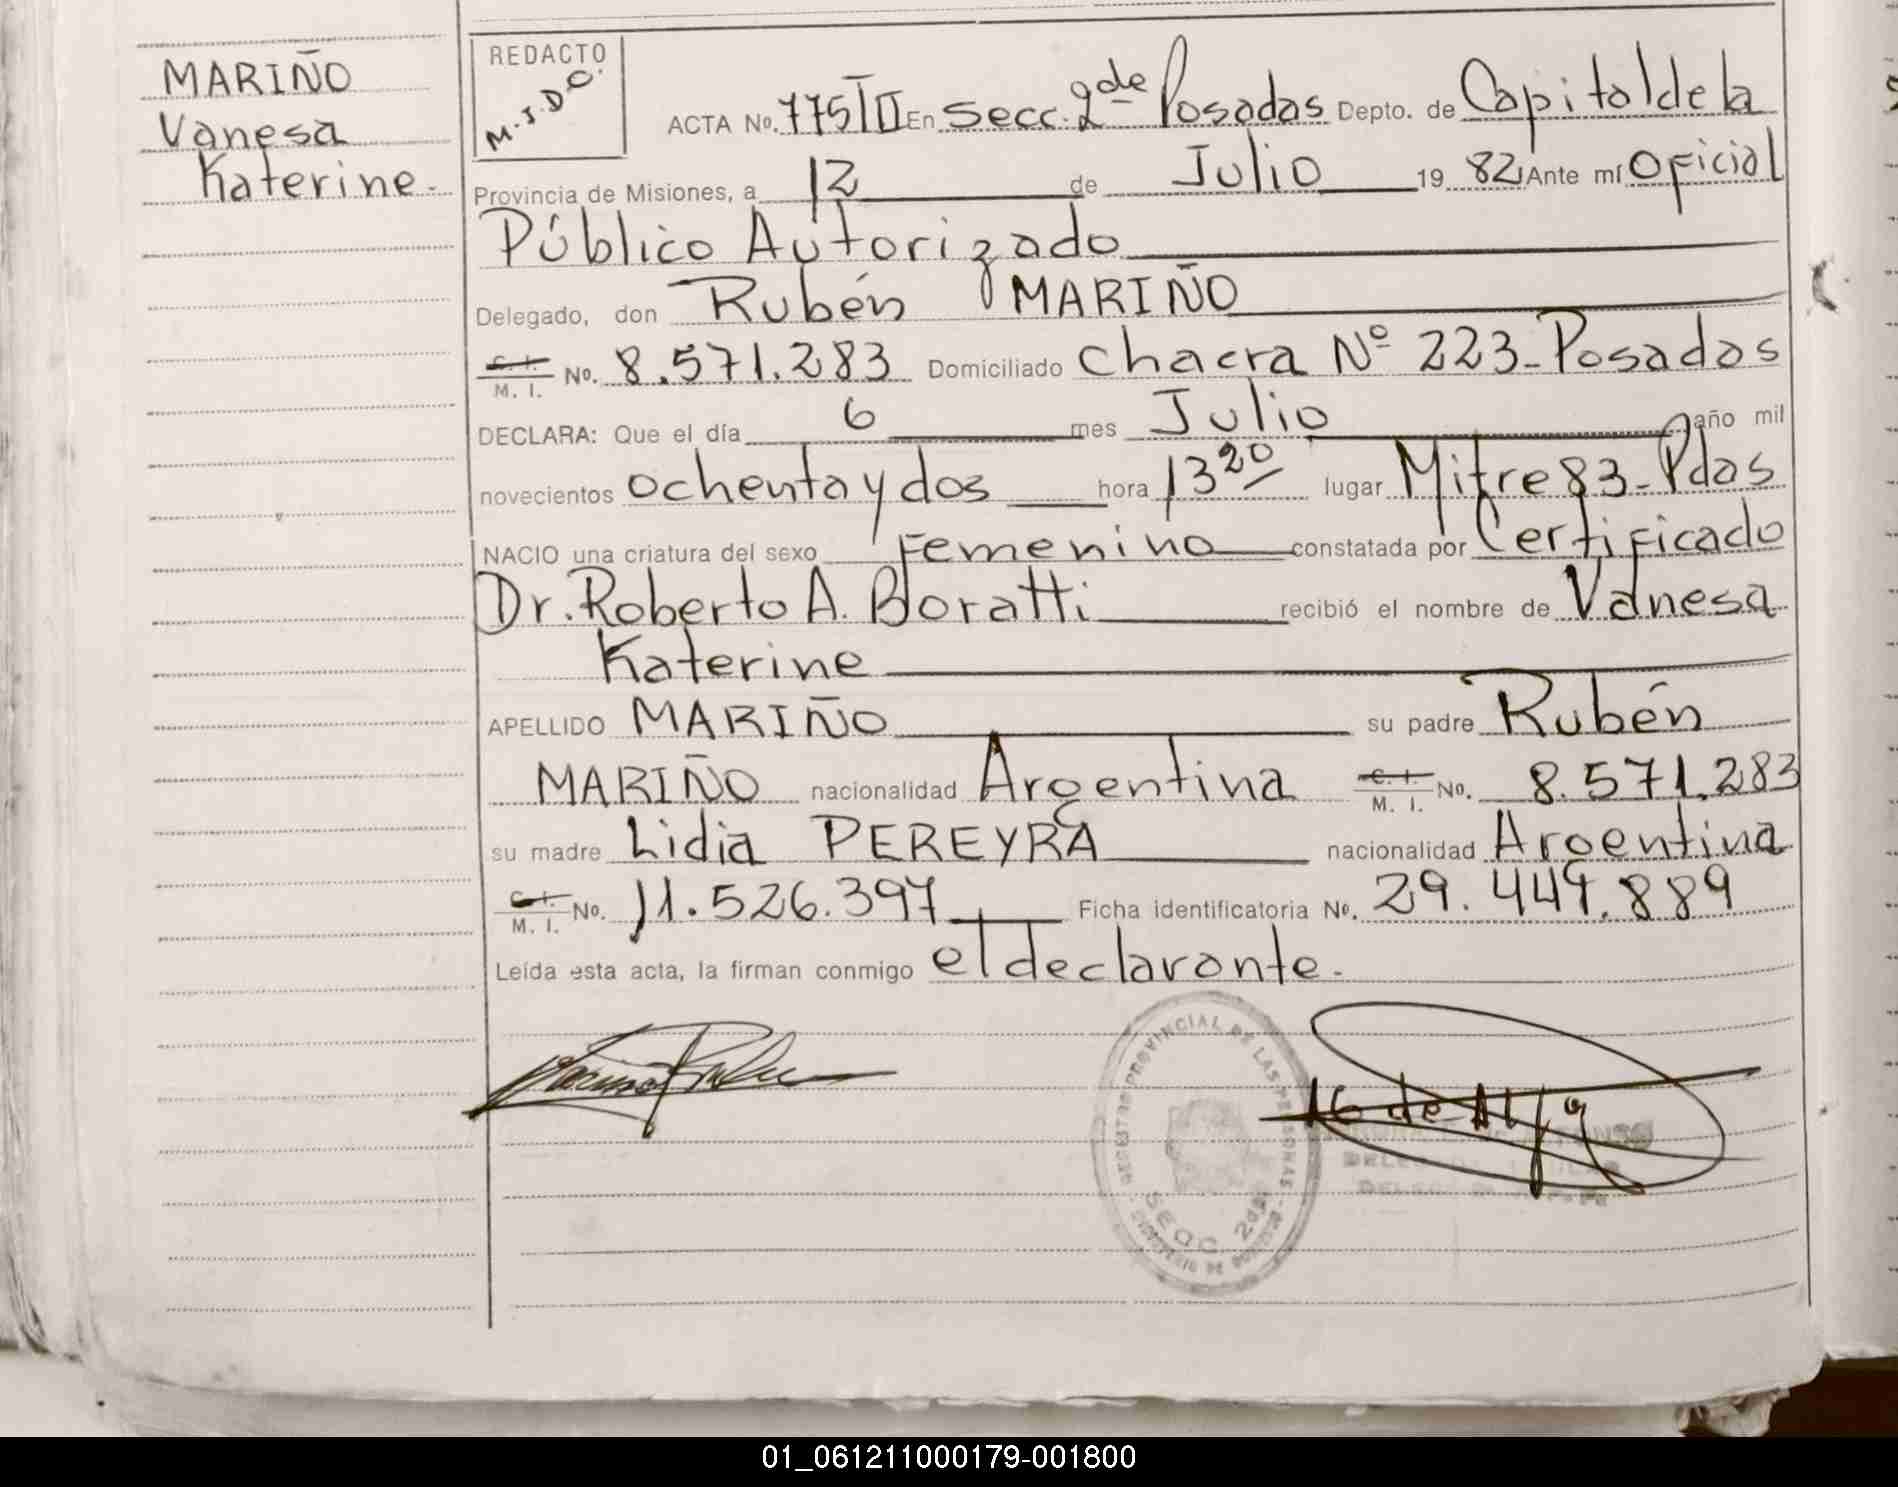 MARIÑO
Vanesa
Katerine.
REDACTO
M.J.D.O.
ACTA Nº. 775/II En Secc. 2da de Posadas Depto. de Capital de la
Provincia de Misiones, a 12 de Julio 1982 Ante mí Oficial
Público Autorizado
Delegado, don Rubén MARIÑO
C. I. / M. I. No. 8.571.283 Domiciliado Chacra Nº 223_Posadas
DECLARA: Que el día 6 mes Julio año mil
novecientos ochenta y dos hora 13 20 lugar Mitre 83_Pdas
NACIO una criatura del sexo Femenino constatada por Certificado
Dr. Roberto A. Boratti recibió el nombre de Vanesa
Katerine
APELLIDO MARIÑO su padre Rubén
MARIÑO nacionalidad Argentina C. I. / M. I. No. 8.571.283
su madre Lidia PEREYRA nacionalidad Argentina
C. I. / M. I. No. 11.526.397 Ficha identificatoria Nº. 29.449.889
Leída esta acta, la firman conmigo el declarante.
REGISTRO PROVINCIAL DE LAS PERSONAS
SECC 2da
01_061211000179-001800